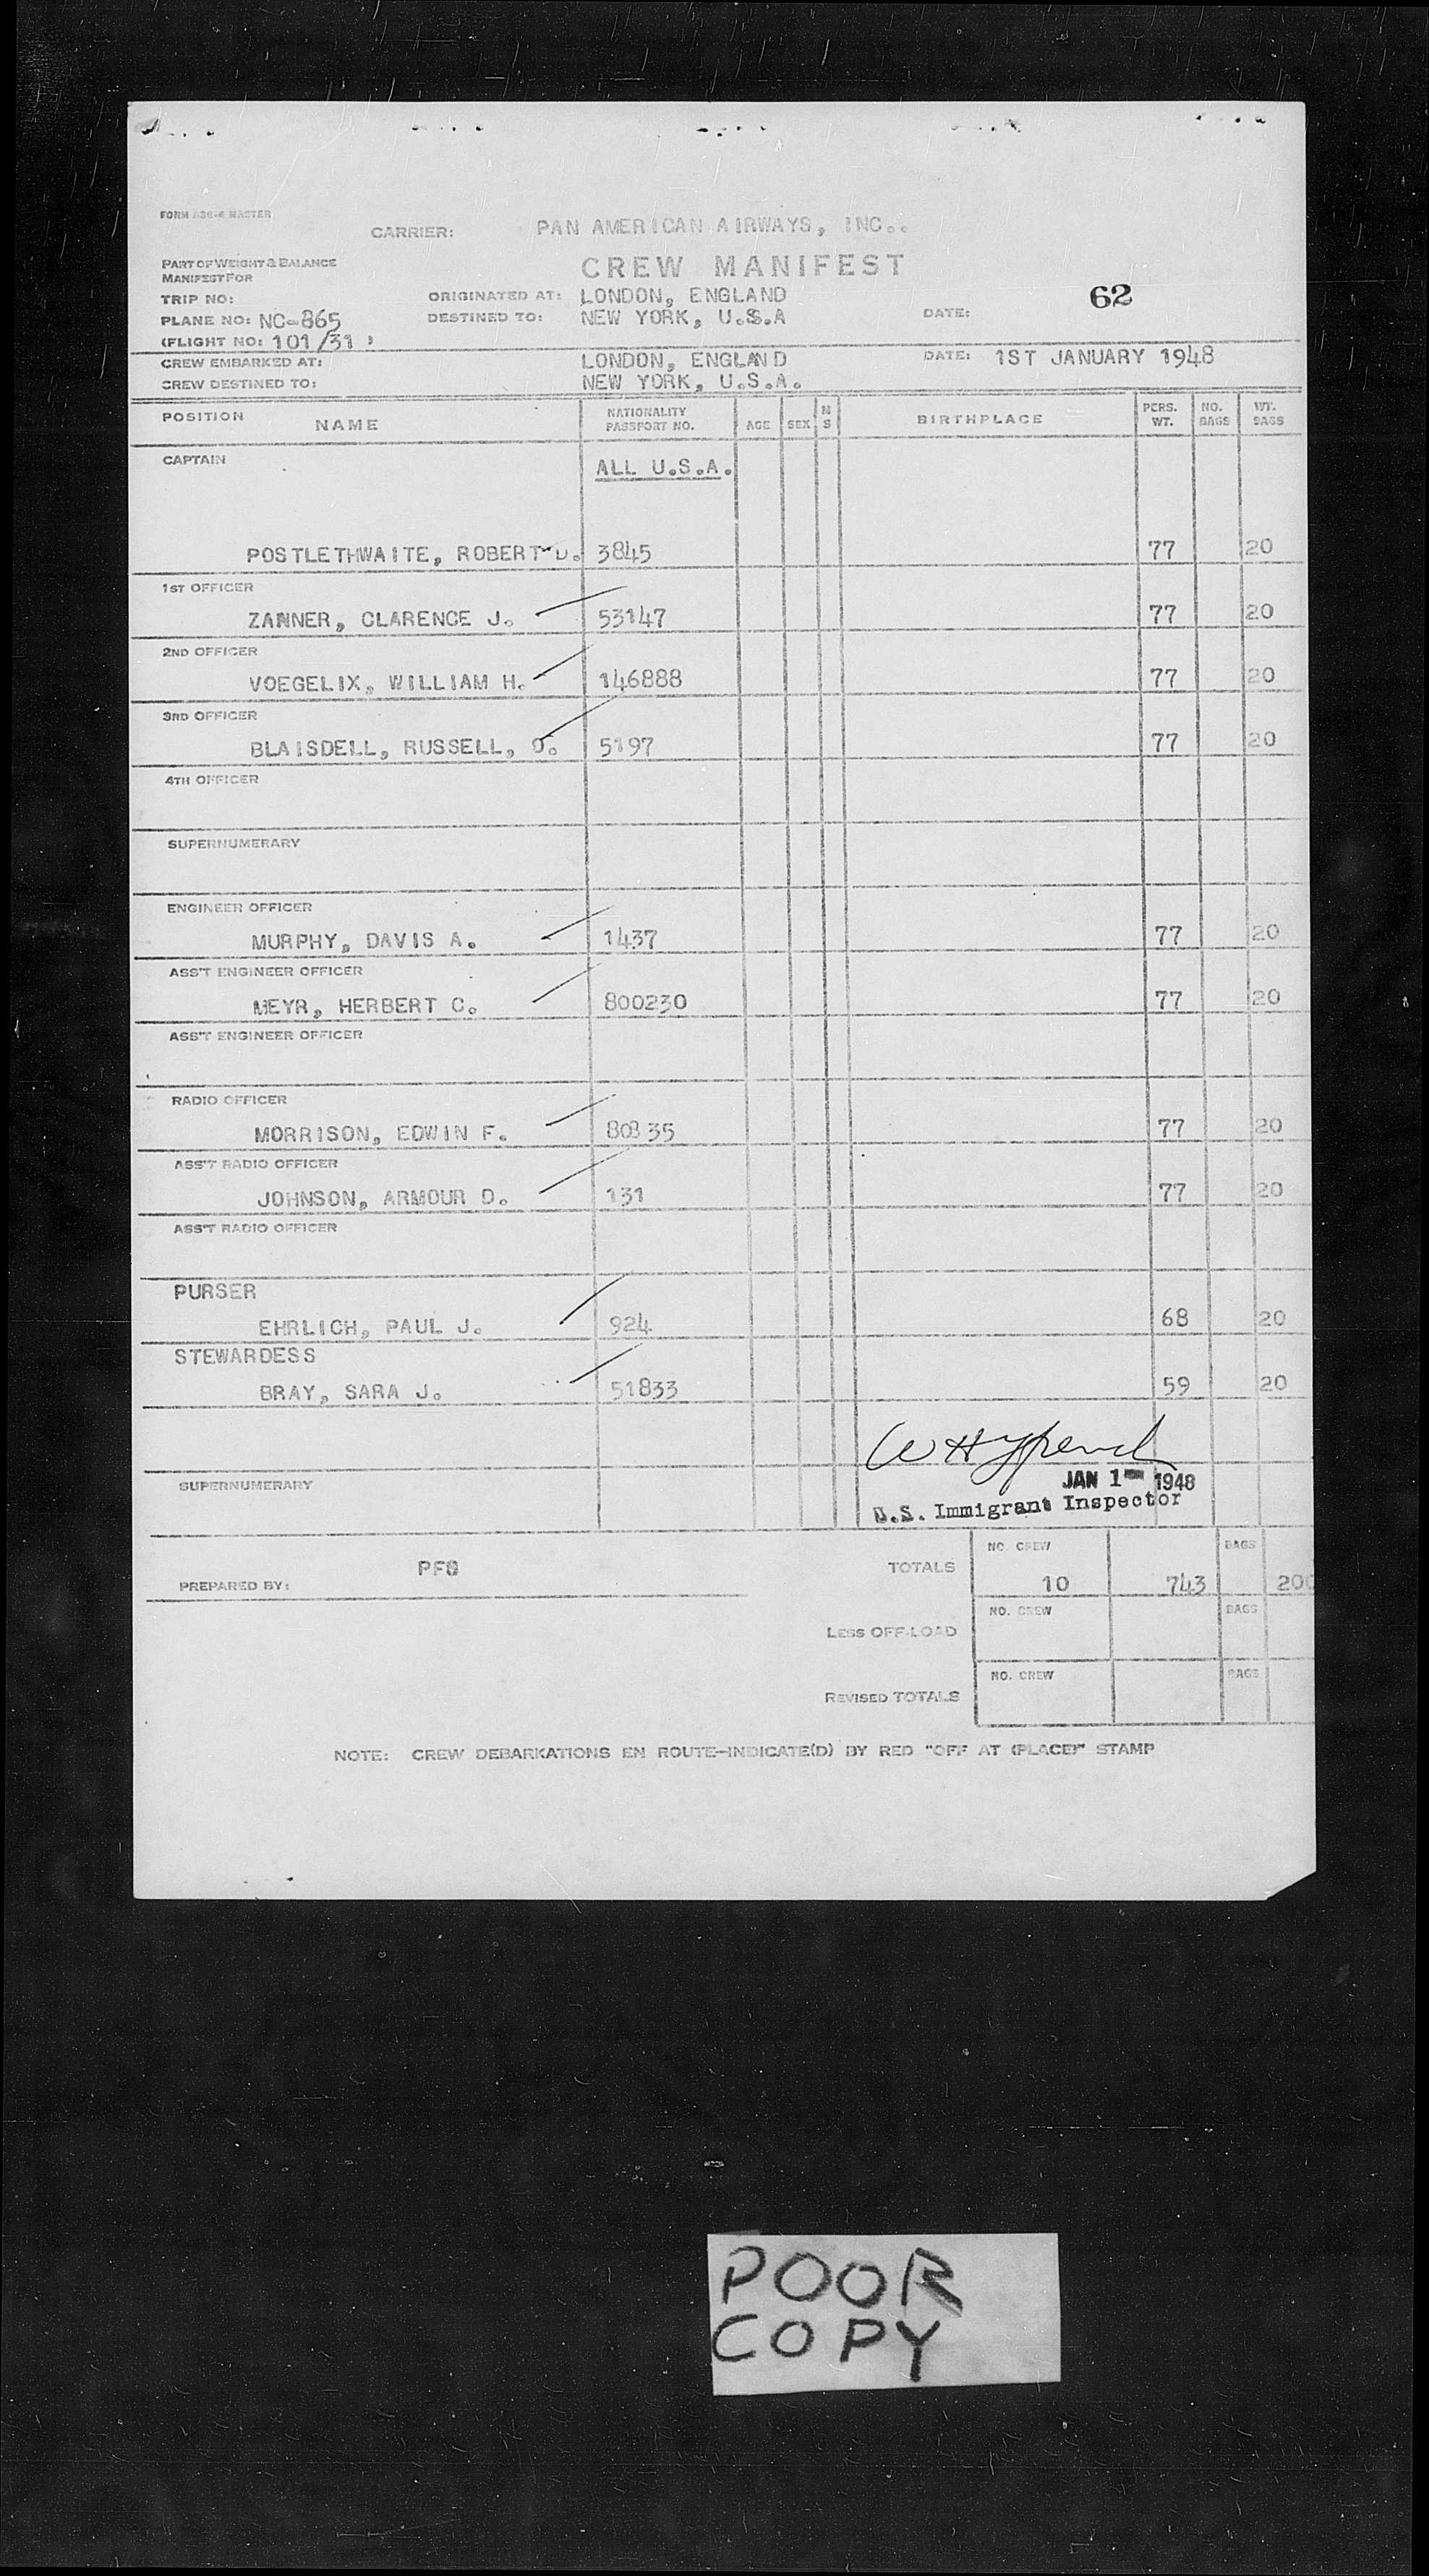 FORM A30-4 MASTER
CARRIER: PAN AMERICAN AIRWAYS, INC..
PART OF WEIGHT & BALANCE
MANIFEST FOR
CREW MANIFEST
TRIP NO: ORIGINATED AT: LONDON, ENGLAND 62
PLANE NO: NC-865 DESTINED TO: NEW YORK, U.S.A DATE:
(FLIGHT NO: 101/31 )
CREW EMBARKED AT: LONDON, ENGLAND DATE: 1ST JANUARY 1948
CREW DESTINED TO: NEW YORK, U.S.A.
POSITION NAME NATIONALITY PASSPORT NO. AGE SEX M S BIRTHPLACE PERS. WT. NO. BAGS WT. BAGS
CAPTAIN ALL U.S.A.
POSTLETHWAITE, ROBERT D. 3845 77 20
1ST OFFICER
ZANNER, CLARENCE J. 53147 77 20
2ND OFFICER
VOEGELIX, WILLIAM H. 146888 77 20
3RD OFFICER
BLAISDELL, RUSSELL, 5197 77 20
4TH OFFICER
SUPERNUMERARY
ENGINEER OFFICER
MURPHY, DAVIS A. 1437 77 20
ASS'T ENGINEER OFFICER
MEYR, HERBERT C. 800230 77 20
ASS'T ENGINEER OFFICER
RADIO OFFICER
MORRISON, EDWIN F. 77 20
ASS'T RADIO OFFICER
JOHNSON, ARMOUR D. 131 77 20
ASS'T RADIO OFFICER
PURSER
EHRLICH, PAUL J. 924 68 20
STEWARDESS
BRAY, SARA J. 51833 59 20
JAN 1 1948
SUPERNUMERARY U.S. Immigrant Inspector
PREPARED BY: TOTALS NO. CREW 10 743 BAGS 200
LESS OFF-LOAD NO. CREW BAGS
REVISED TOTALS NO. CREW BAGS
NOTE: CREW DEBARKATIONS EN ROUTE-INDICATE(D) BY RED "OFF AT (PLACE)" STAMP
POOR
COPY